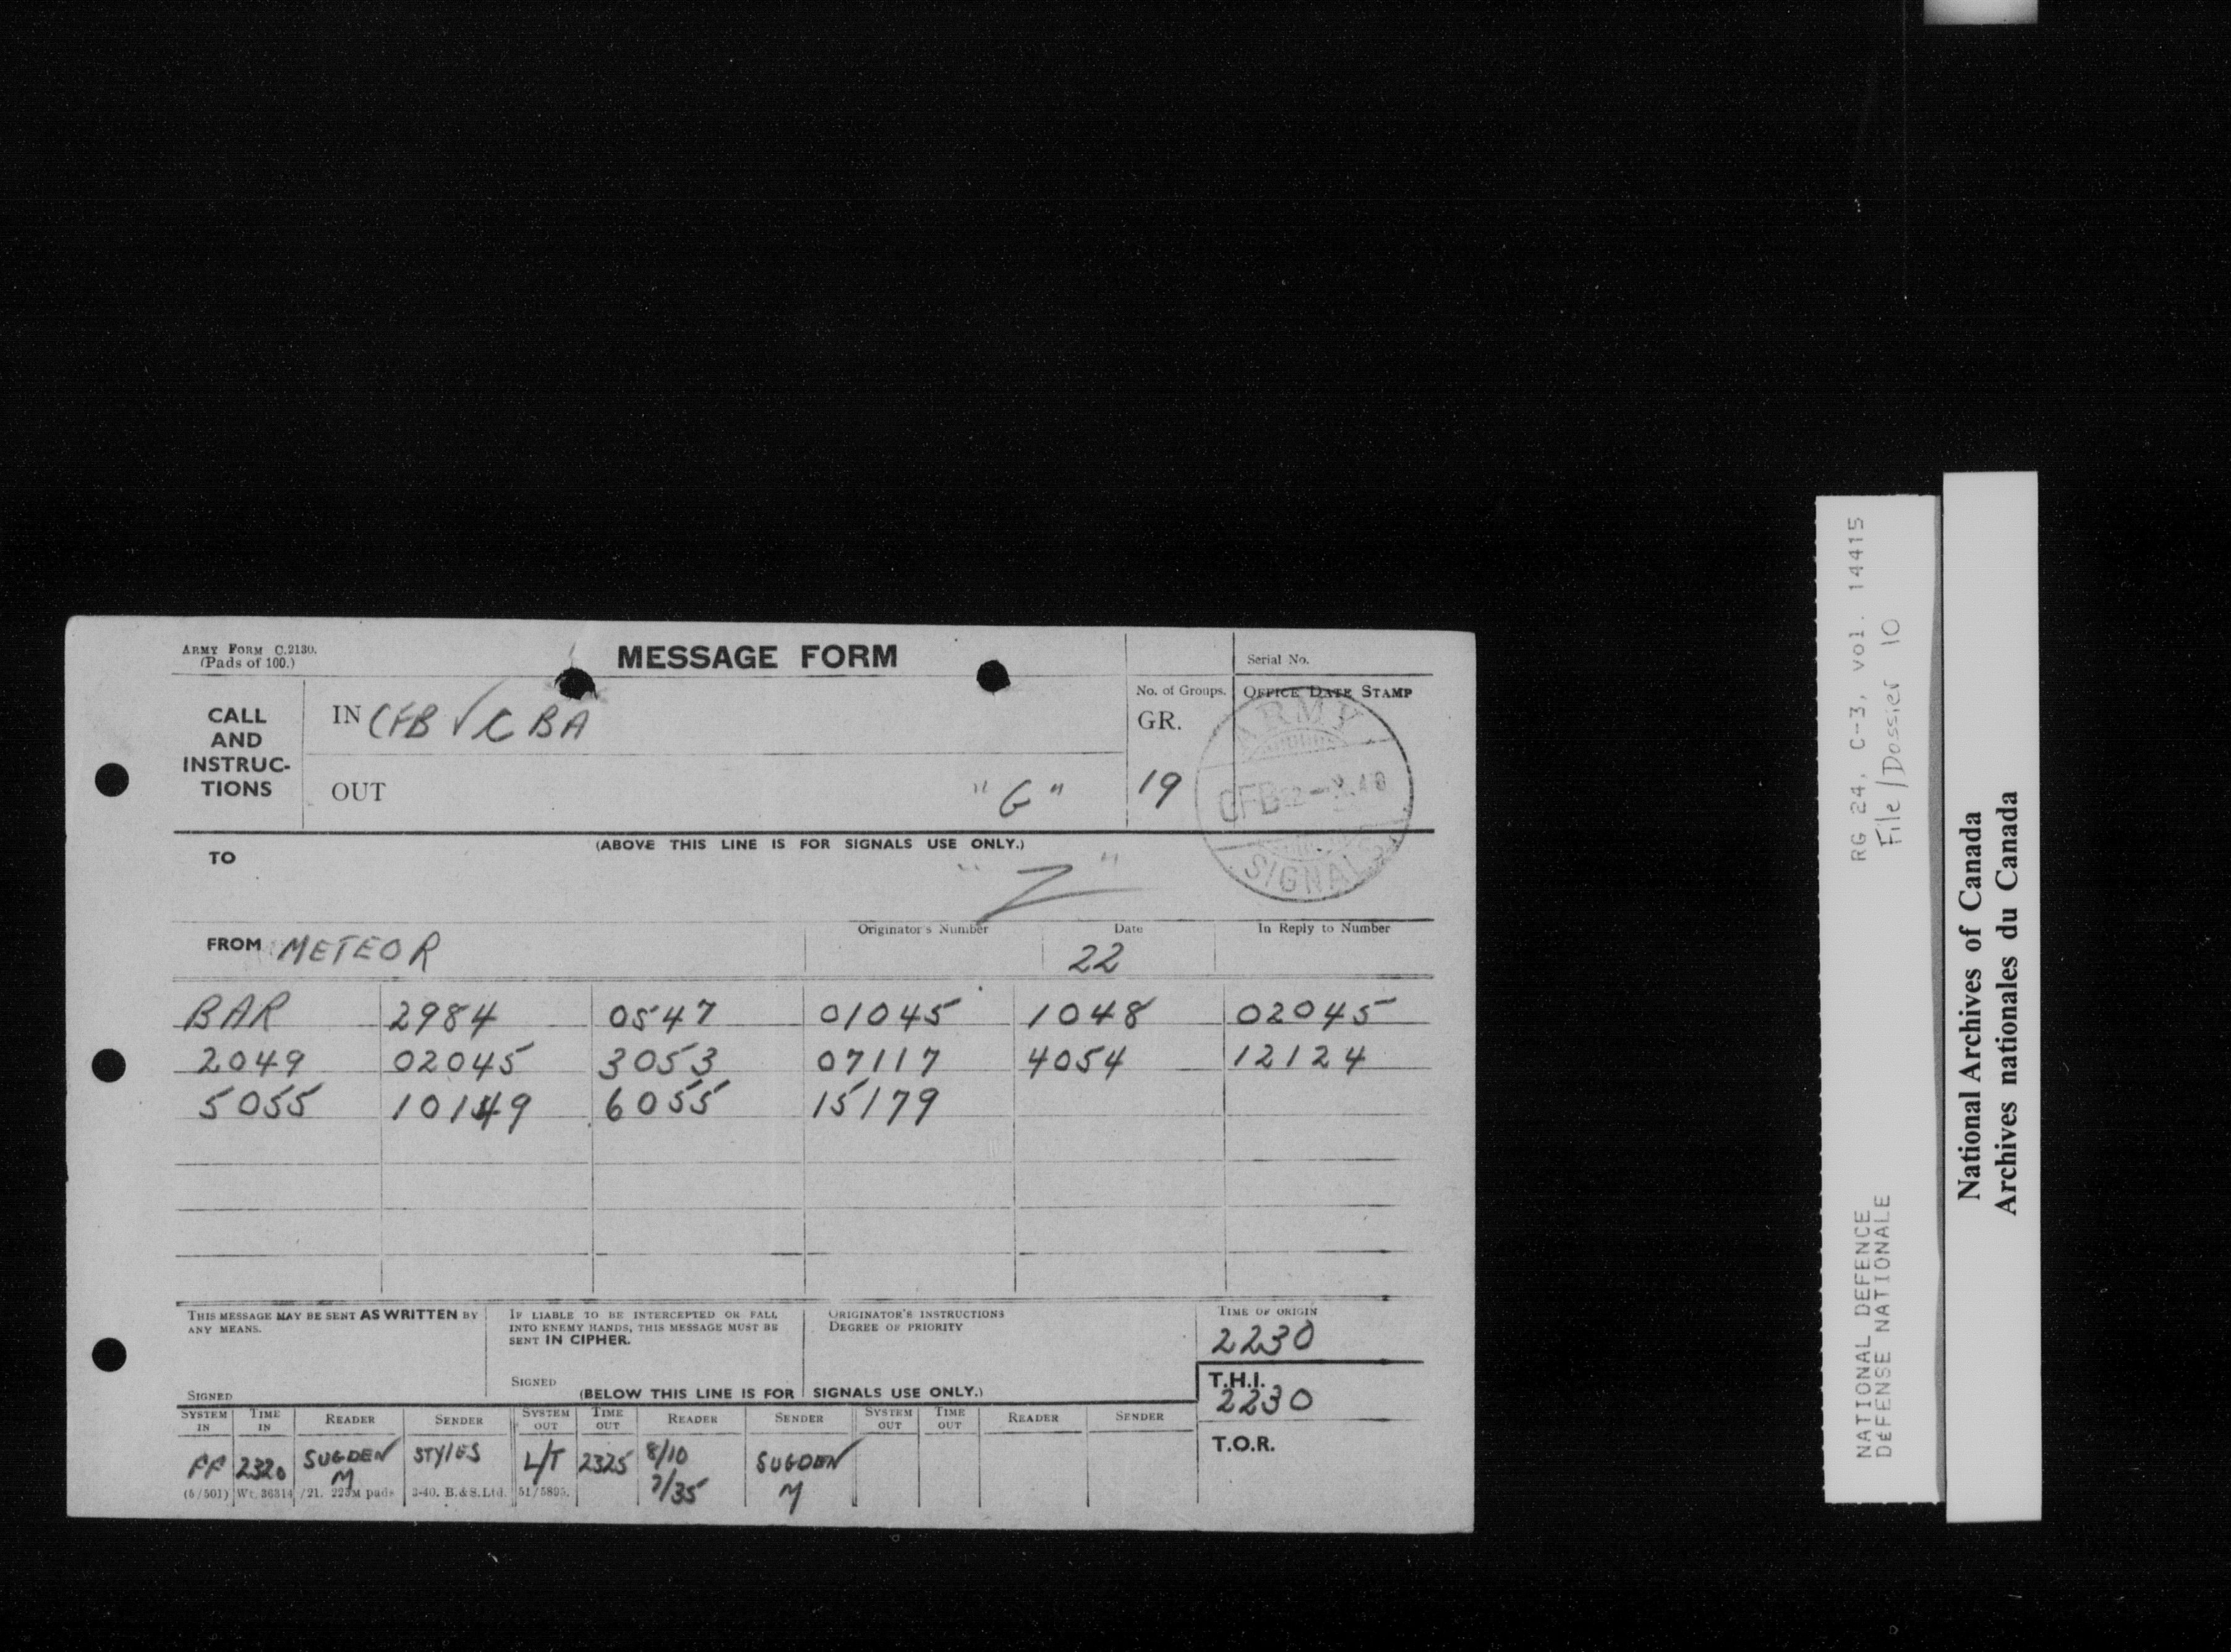 ARMY FORM C.2130.
(Pads of 100.)
MESSAGE FORM
Serial No.
CALL AND INSTRUC-TIONS
IN CFB V CBA
No. of Groups.
GR.
19
OFFICE DATE STAMP
ARMY
CFB
SIGNALS
OUT
"G"
(ABOVE THIS LINE IS FOR SIGNALS USE ONLY.)
TO
"Z"
FROM METEOR
Originator's Number
Date
22
In Reply to Number
BAR 2984 0547 01045 1048 02045
2049 02045 3053 07117 4054 12124
5055 10149 6055 15179
THIS MESSAGE MAY BE SENT AS WRITTEN BY
ANY MEANS.
SIGNED
IF LIABLE TO BE INTERCEPTED OR FALL
INTO ENEMY HANDS, THIS MESSAGE MUST BE
SENT IN CIPHER.
SIGNED
ORIGINATOR'S INSTRUCTIONS
DEGREE OF PRIORITY
TIME OF ORIGIN
2230
T.H.I.
2230
T.O.R.
(BELOW THIS LINE IS FOR SIGNALS USE ONLY.)
SYSTEM IN TIME IN READER SENDER SYSTEM OUT TIME OUT READER SENDER SYSTEM OUT TIME OUT READER SENDER
FF 2320 SUGDEN M STYLES L/T 2325 8/10 SUGDEN M
(5/501) Wt. 36314/21. 225M pads 3-40. B.&S.Ltd. 51/5895.
RG 24, C-3, vol. 14415
File/Dossier 10
NATIONAL DEFENCE
DÉFENSE NATIONALE
National Archives of Canada
Archives nationales du Canada